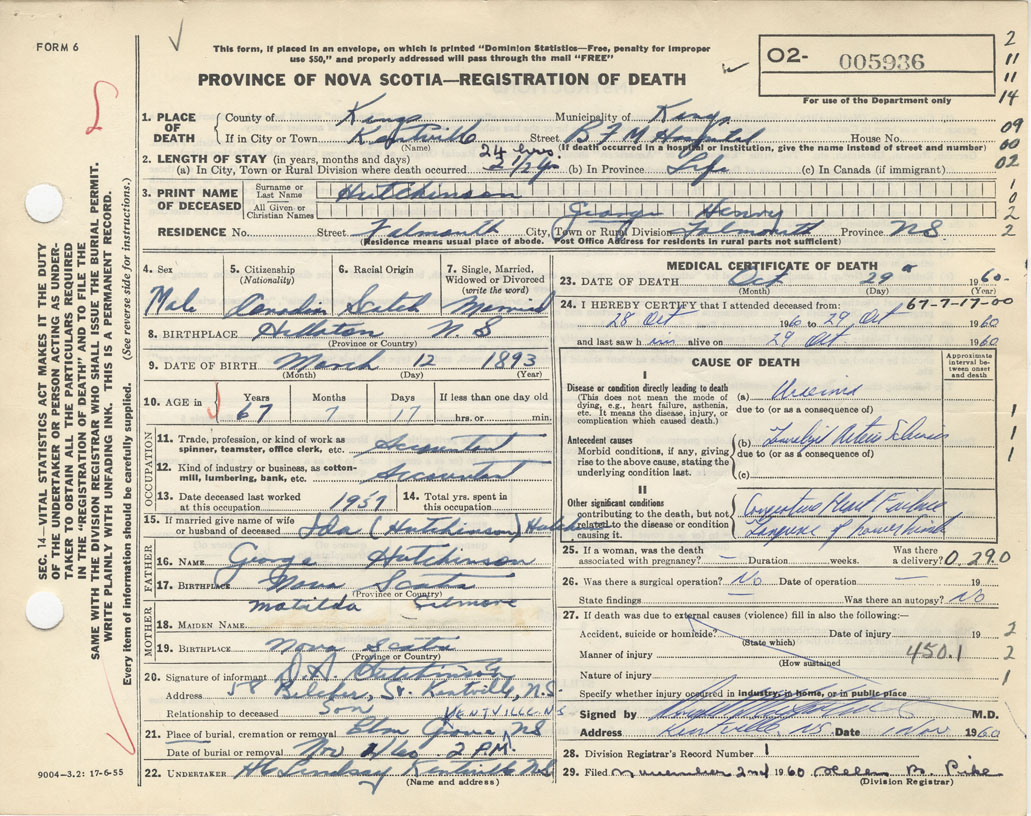 FORM 6
This form, if placed in an envelope, on which is printed "Dominion Statistics—Free, penalty for improper
use $50," and properly addressed will pass through the mail "FREE"
PROVINCE OF NOVA SCOTIA—REGISTRATION OF DEATH
O2- 005936
For use of the Department only
2
11
11
14
09
00
02
1
0
2
2
1. PLACE OF DEATH
County of Kings Municipality of Kings
If in City or Town Kentville Street B F M Hospital House No.
(Name) (If death occurred in a hospital or institution, give the name instead of street and number)
2. LENGTH OF STAY (in years, months and days) 24 hrs.
(a) In City, Town or Rural Division where death occurred 2 1/2 yr (b) In Province Life (c) In Canada (if immigrant)
3. PRINT NAME OF DECEASED
Surname or Last Name Hutchinson
All Given or Christian Names George Henry
RESIDENCE No. Street Falmouth City, Town or Rural Division Falmouth Province NS
(Residence means usual place of abode. Post Office Address for residents in rural parts not sufficient)
4. Sex 5. Citizenship (Nationality) 6. Racial Origin 7. Single, Married, Widowed or Divorced (write the word)
Male Canadian Scotch Married
8. BIRTHPLACE N.S
(Province or Country)
9. DATE OF BIRTH March 12 1893
(Month) (Day) (Year)
10. AGE in Years Months Days If less than one day old
67 7 17 hrs. or min.
OCCUPATION
11. Trade, profession, or kind of work as spinner, teamster, office clerk, etc. Accountant
12. Kind of industry or business, as cotton-mill, lumbering, bank, etc. Accountant
13. Date deceased last worked at this occupation 1957 14. Total yrs. spent in this occupation
15. If married give name of wife or husband of deceased Ida (Hutchinson)
FATHER
16. NAME George Hutchinson
17. BIRTHPLACE Nova Scotia
(Province or Country)
MOTHER
Matilda
18. MAIDEN NAME
19. BIRTHPLACE Nova Scotia
(Province or Country)
20. Signature of informant
Address 58 St. Kentville, N.S.
Relationship to deceased Son KENTVILLE NS
21. Place of burial, cremation or removal Elm Grove NS
Date of burial or removal Nov 1/60 2 P.M.
22. UNDERTAKER Lindsay Kentville NS
(Name and address)
MEDICAL CERTIFICATE OF DEATH
23. DATE OF DEATH Oct 29 1960
(Month) (Day) (Year)
67-7-17-00
24. I HEREBY CERTIFY that I attended deceased from:
28 Oct 1960 to 29 Oct 1960
and last saw him alive on 29 Oct 1960
CAUSE OF DEATH
Approximate interval between onset and death
I
Disease or condition directly leading to death
(This does not mean the mode of dying, e.g., heart failure, asthenia, etc. It means the disease, injury, or complication which caused death.)
(a) Uraemia
due to (or as a consequence of)
Antecedent causes
Morbid conditions, if any, giving rise to the above cause, stating the underlying condition last.
(b)
due to (or as a consequence of)
(c)
1
1
1
II
Other significant conditions contributing to the death, but not related to the disease or condition causing it.
Heart Failure
25. If a woman, was the death associated with pregnancy? — Duration weeks. Was there a delivery? 0.290
26. Was there a surgical operation? No Date of operation — 19
State findings Was there an autopsy? No
27. If death was due to external causes (violence) fill in also the following:—
Accident, suicide or homicide? Date of injury 19 2
(State which)
Manner of injury 450.1 2
(How sustained)
Nature of injury 1
Specify whether injury occurred in industry, in home, or in public place
Signed by M.D.
Address Kentville, NS. Date 1 Nov 1960
28. Division Registrar's Record Number 1
29. Filed November 2nd 1960 Helen B. Pike
(Division Registrar)
SEC. 14—VITAL STATISTICS ACT MAKES IT THE DUTY
OF THE UNDERTAKER OR PERSON ACTING AS UNDER-
TAKER TO OBTAIN ALL THE PARTICULARS REQUIRED
IN THE "REGISTRATION OF DEATH" AND TO FILE THE
SAME WITH THE DIVISION REGISTRAR WHO SHALL ISSUE THE BURIAL PERMIT.
WRITE PLAINLY WITH UNFADING INK. THIS IS A PERMANENT RECORD.
Every item of information should be carefully supplied. (See reverse side for instructions.)
9004—3.2: 17-6-55